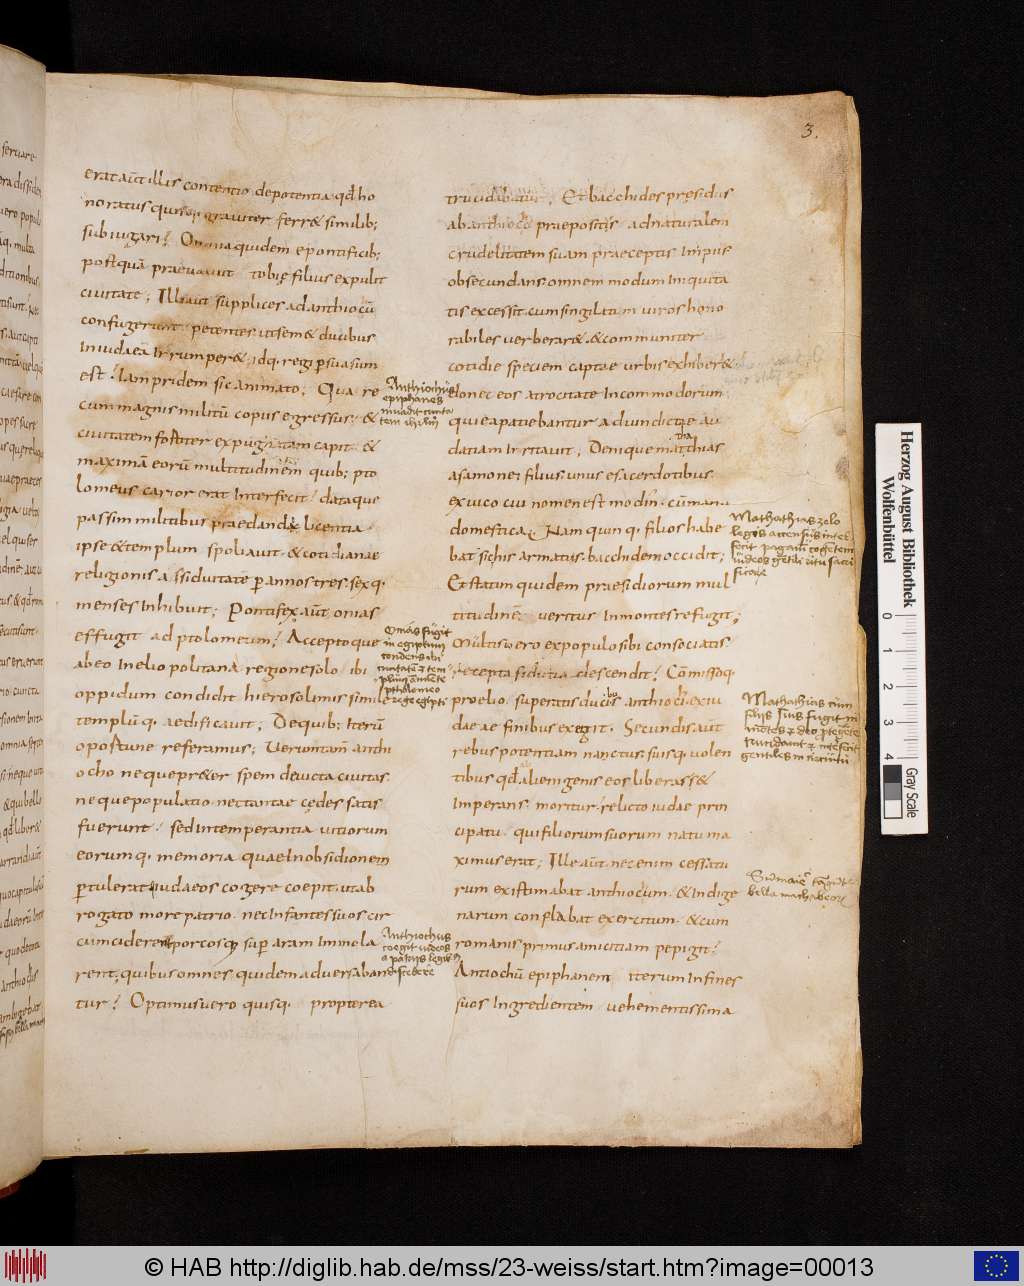 3.
erat aūt illis contentio depotentia qđ ho
noratus quisq; grauiter ferr& similib;
subiugari? Omnia quidem e pontificib;
postquā praeualuit tobię filius expulit
ciuitate; Illi aūt supplices ad anthiocū
confugerunt petentes ut sem& ducibus
Iniudaeā Irrumper&; Idq. regi p̄suasum
est? Iam pridem sic animato; Qua re
cum magnis militū copiis egressus. &
ciuitatem fortiter expugnatam capit &
maximā eorū multitudinem quib; pto
lomeus carior erat Interfecit? dataque
passim militibus praedandi licentia
ipse & templum spoliauit & cotidianae
religionis assiduitate p̄ annos tres. sexq.
menses Inhibuit; Pontifex aūt onias
effugit ad ptolomeum? Acceptoque
abeo Ineliopolitana regione solo ibi
oppidum condidit hierosolimis simile
templūq. aedificauit; De quib; Iterū
oportune referamus; Uerumtam̄ anthi
ocho neque pr&er spem deuicta ciuitas.
neque populatio nec tantae cędes satis
fuerunt? sed intemperantia uitiorum
eorumq. memoria quae In obsidionem
p̄tulerat iudaeos cogere coepit ut ab
rogato more patrio. nec Infantes suos cir
cumciderent porcosq; sup̄ aram Immola
rent; quibus omnes quidem aduersaban
tur? Optimus uero quisq. propterea
Anthiochus
epiphanes
inuadit ciuita
tem ihrlm̄
Onias fugit
in egiptum
condens ibi
ciuitatē & tem
plum
pthalomeo
rege egipti
Anthiochus
coegit iudeos
a patriis legib;
discedere
trucidabatur; Et bacchides pręsidiis
ab anthioco praepositus ad naturalem
crudelitatem suam praeceptis Impiis
obsecundans. omnem modum Iniquita
tis excessit. cum singillatim uiros hono
rabiles uerberar&. & communiter
cotidie speciem captae urbis exhiber&
donec eos atrocitate Incommodorum
quae patiebantur ad uindictę au
datiam Irritauit; Denique matthias
asamonei filius. unus e sacerdotibus
ex uico cui nomen est modin. cū manu
domestica. Nam quinq. filios habe
bat. sichis armatus. bacchidem occidit;
Et statim quidem praesidiorum mul
titudinē ueritus Inmontes refugit;
Multis uero expopulo sibi consociatis
recepta fidutia descendit? Cōmissoq.
proelio. superatis ducibus anthiochi ex iu
daeae finibus exegit. Secundis aūt
rebus potentiam nanctus. suisq. uolen
tibus qđ alienigenis eos liberass&
Imperans. moritur? relicto iudae prin
cipatu. qui filiorum suorum natu ma
ximus erat; Ille aūt nec enim cessatu
rum existimabat anthiocum. & Indige
narum conflabat exercitum. & cum
romanis primus amicitiam pepigit?
Antiochū epiphanem iterum Infines
suos Ingredientem uehementissima
Mathathias zelo
legis accensus inter
fecit paganū cogentem
iudeos gentili ritu sacri
ficare
Mathathias cum
filiis suis fugit in
mōtes
trucidauit & interfecit
gentiles
bella machabeorū
Herzog August Bibliothek
Wolfenbüttel
0 1 2 3 4
Gray Scale
© HAB http://diglib.hab.de/mss/23-weiss/start.htm?image=00013